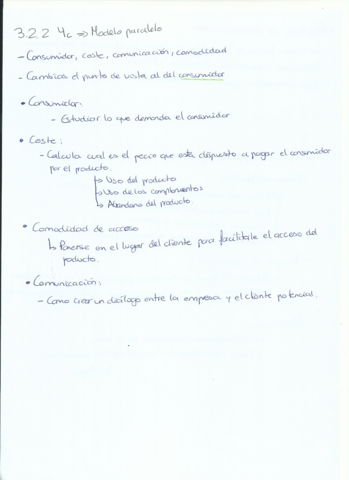 3.2.2 4c => Modelo paralelo
- Consumidor, coste, comunicación, comodidad
- Cambias el punto de vista al del consumidor
• Consumidor:
- Estudiar lo que demanda el consumidor
• Coste:
- Calcula cual es el precio que está dispuesto a pagar el consumidor
por el producto.
↳ Uso del producto
↳ Uso de los complementos
↳ Abandono del producto.
• Comodidad de acceso
↳ Ponerse en el lugar del cliente para facilitarle el acceso del
producto.
• Comunicación:
- Como crear un diálogo entre la empresa y el cliente potencial.